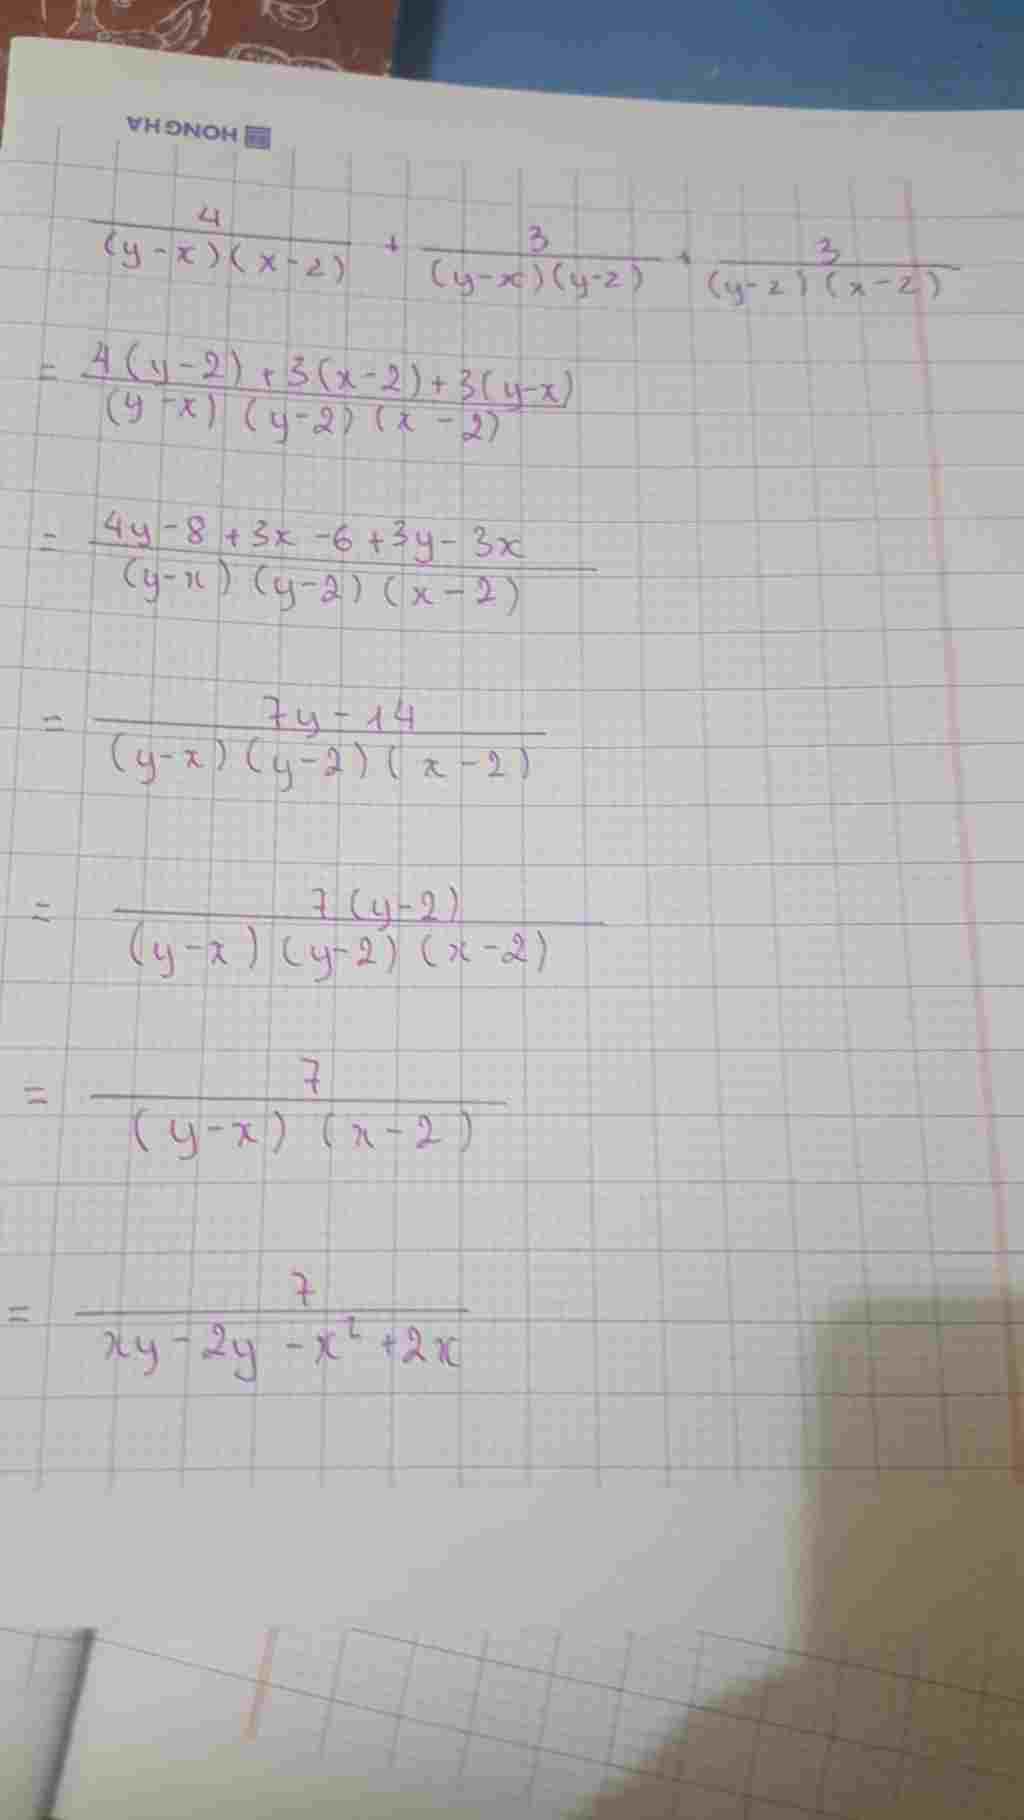 HONG HA
4/((y-x)(x-2)) + 3/((y-x)(y-2)) + 3/((y-2)(x-2))
= (4(y-2)+3(x-2)+3(y-x))/((y-x)(y-2)(x-2))
= (4y-8+3x-6+3y-3x)/((y-x)(y-2)(x-2))
= (7y-14)/((y-x)(y-2)(x-2))
= (7(y-2))/((y-x)(y-2)(x-2))
= 7/((y-x)(x-2))
= 7/(xy-2y-x²+2x)